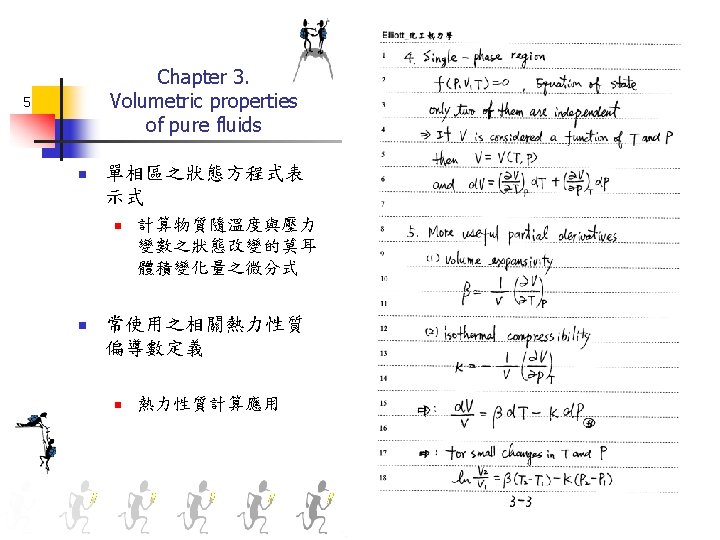 5
Chapter 3.
Volumetric properties
of pure fluids
單相區之狀態方程式表
示式
計算物質隨溫度與壓力
變數之狀態改變的莫耳
體積變化量之微分式
常使用之相關熱力性質
偏導數定義
熱力性質計算應用
Elliott 化工熱力學
1 4. Single-phase region
2 f(P,V,T)=0, Equation of state
3 only two of them are independent
4 ⇒ If V is considered a function of T and P
5 then V = V(T,P)
6 and dV = (∂V/∂T)_P dT + (∂V/∂P)_T dP
7
8 5. More useful partial derivatives
9 (1) volume expansivity
10 β = 1/V (∂V/∂T)_P
11
12 (2) isothermal compressibility
13 κ = - 1/V (∂V/∂P)_T
14
15 ⇒: dV/V = β dT - κ dP
16
17 ⇒: for small changes in T and P
18 ln V₂/V₁ = β(T₂-T₁) - κ(P₂-P₁)
3-3